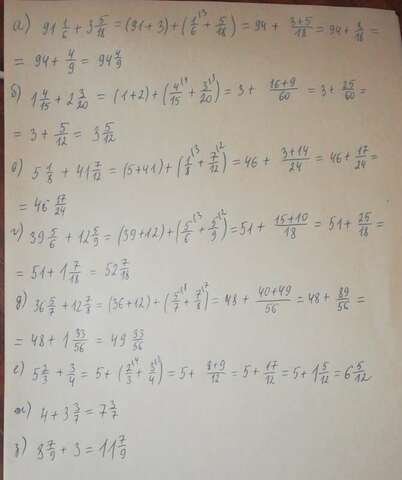 а) 91 1/6 + 3 5/18 = (91+3) + (1/6^(3 + 5/18) = 94 + 3+5/18 = 94 + 8/18 =
= 94 + 4/9 = 94 4/9
б) 1 4/15 + 2 3/20 = (1+2) + (4/15^(4 + 3/20^(3) = 3 + 16+9/60 = 3 + 25/60 =
= 3 + 5/12 = 3 5/12
в) 5 1/8 + 41 7/12 = (5+41) + (1/8^(3 + 7/12^(2) = 46 + 3+14/24 = 46 + 17/24 =
= 46 17/24
г) 39 5/6 + 12 5/9 = (39+12) + (5/6^(3 + 5/9^(2) = 51 + 15+10/18 = 51 + 25/18 =
= 51 + 1 7/18 = 52 7/18
д) 36 5/7 + 12 7/8 = (36+12) + (5/7^(8 + 7/8^(7) = 48 + 40+49/56 = 48 + 89/56 =
= 48 + 1 33/56 = 49 33/56
е) 5 2/3 + 3/4 = 5 + (2/3^(4 + 3/4^(3) = 5 + 8+9/12 = 5 + 17/12 = 5 + 1 5/12 = 6 5/12
ж) 4 + 3 3/7 = 7 3/7
з) 8 7/9 + 3 = 11 7/9